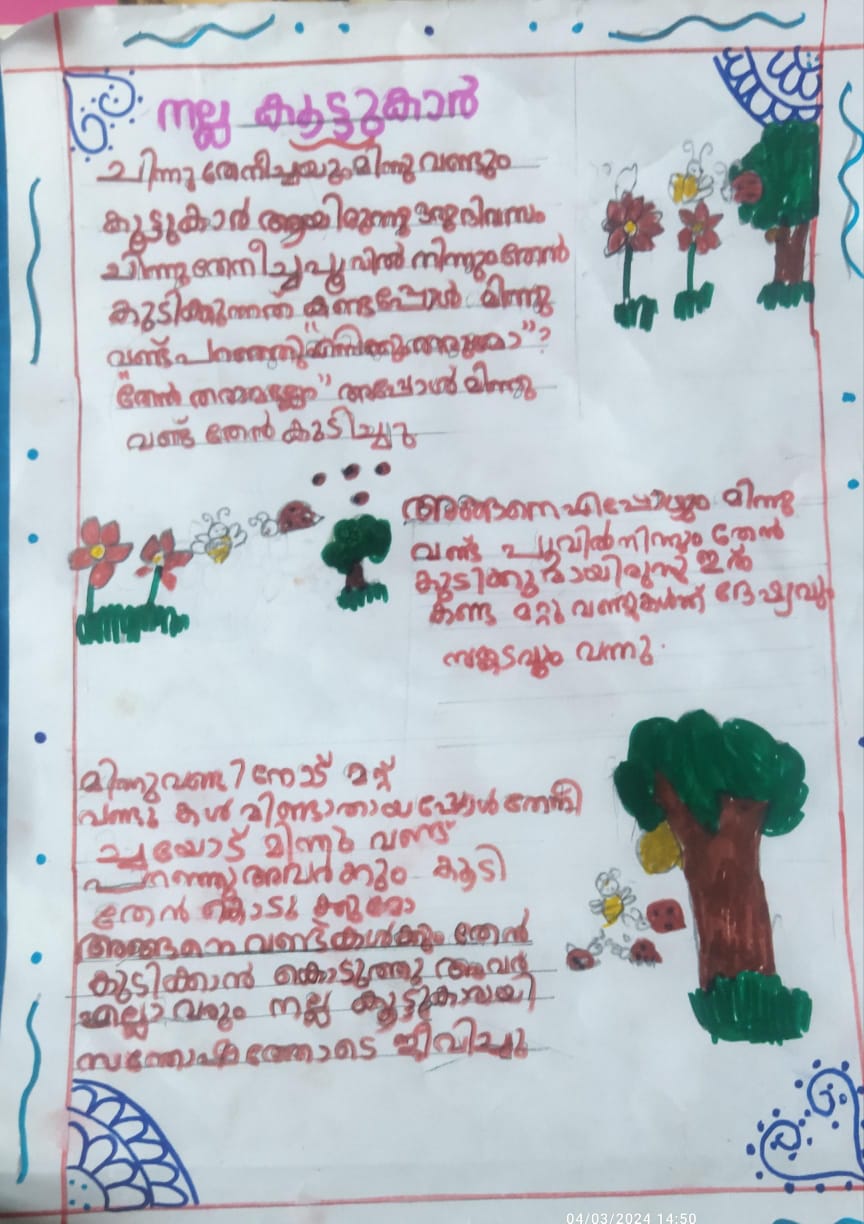 നല്ല കൂട്ടുകാർ
ചിന്നു തേനീച്ചയും മിന്നു വണ്ടും
കൂട്ടുകാർ ആയിരുന്നു ഒരു ദിവസം
ചിന്നു തേനീച്ച പൂവിൽ നിന്നും തേൻ
കുടിക്കുന്നത് കണ്ടപ്പോൾ മിന്നു
വണ്ട് പറഞ്ഞു
"തേൻ അപ്പോൾ മിന്നു
വണ്ട് തേൻ കുടിച്ചു
അങ്ങനെ എപ്പോഴും മിന്നു
വണ്ട് പൂവിൽ നിന്നും തേൻ
കണ്ട മറ്റു വണ്ടുകൾക്ക് ദേഷ്യവും
സങ്കടവും വന്നു.
മിന്നു വണ്ടിനോട് മറ്റ്
വണ്ടു കൾ മിണ്ടാതായപ്പോൾ തേനീ
ച്ചയോട് മിന്നു വണ്ട്
പറഞ്ഞു അവർക്കും കൂടി
തേൻ കൊടുക്കുമോ
അങ്ങനെ വണ്ട്കൾക്കും തേൻ
കുടിക്കാൻ കൊടുത്തു അവർ
എല്ലാവരും നല്ല കൂട്ടുകാരായി
സന്തോഷത്തോടെ ജീവിച്ചു
04/03/2024 14:50